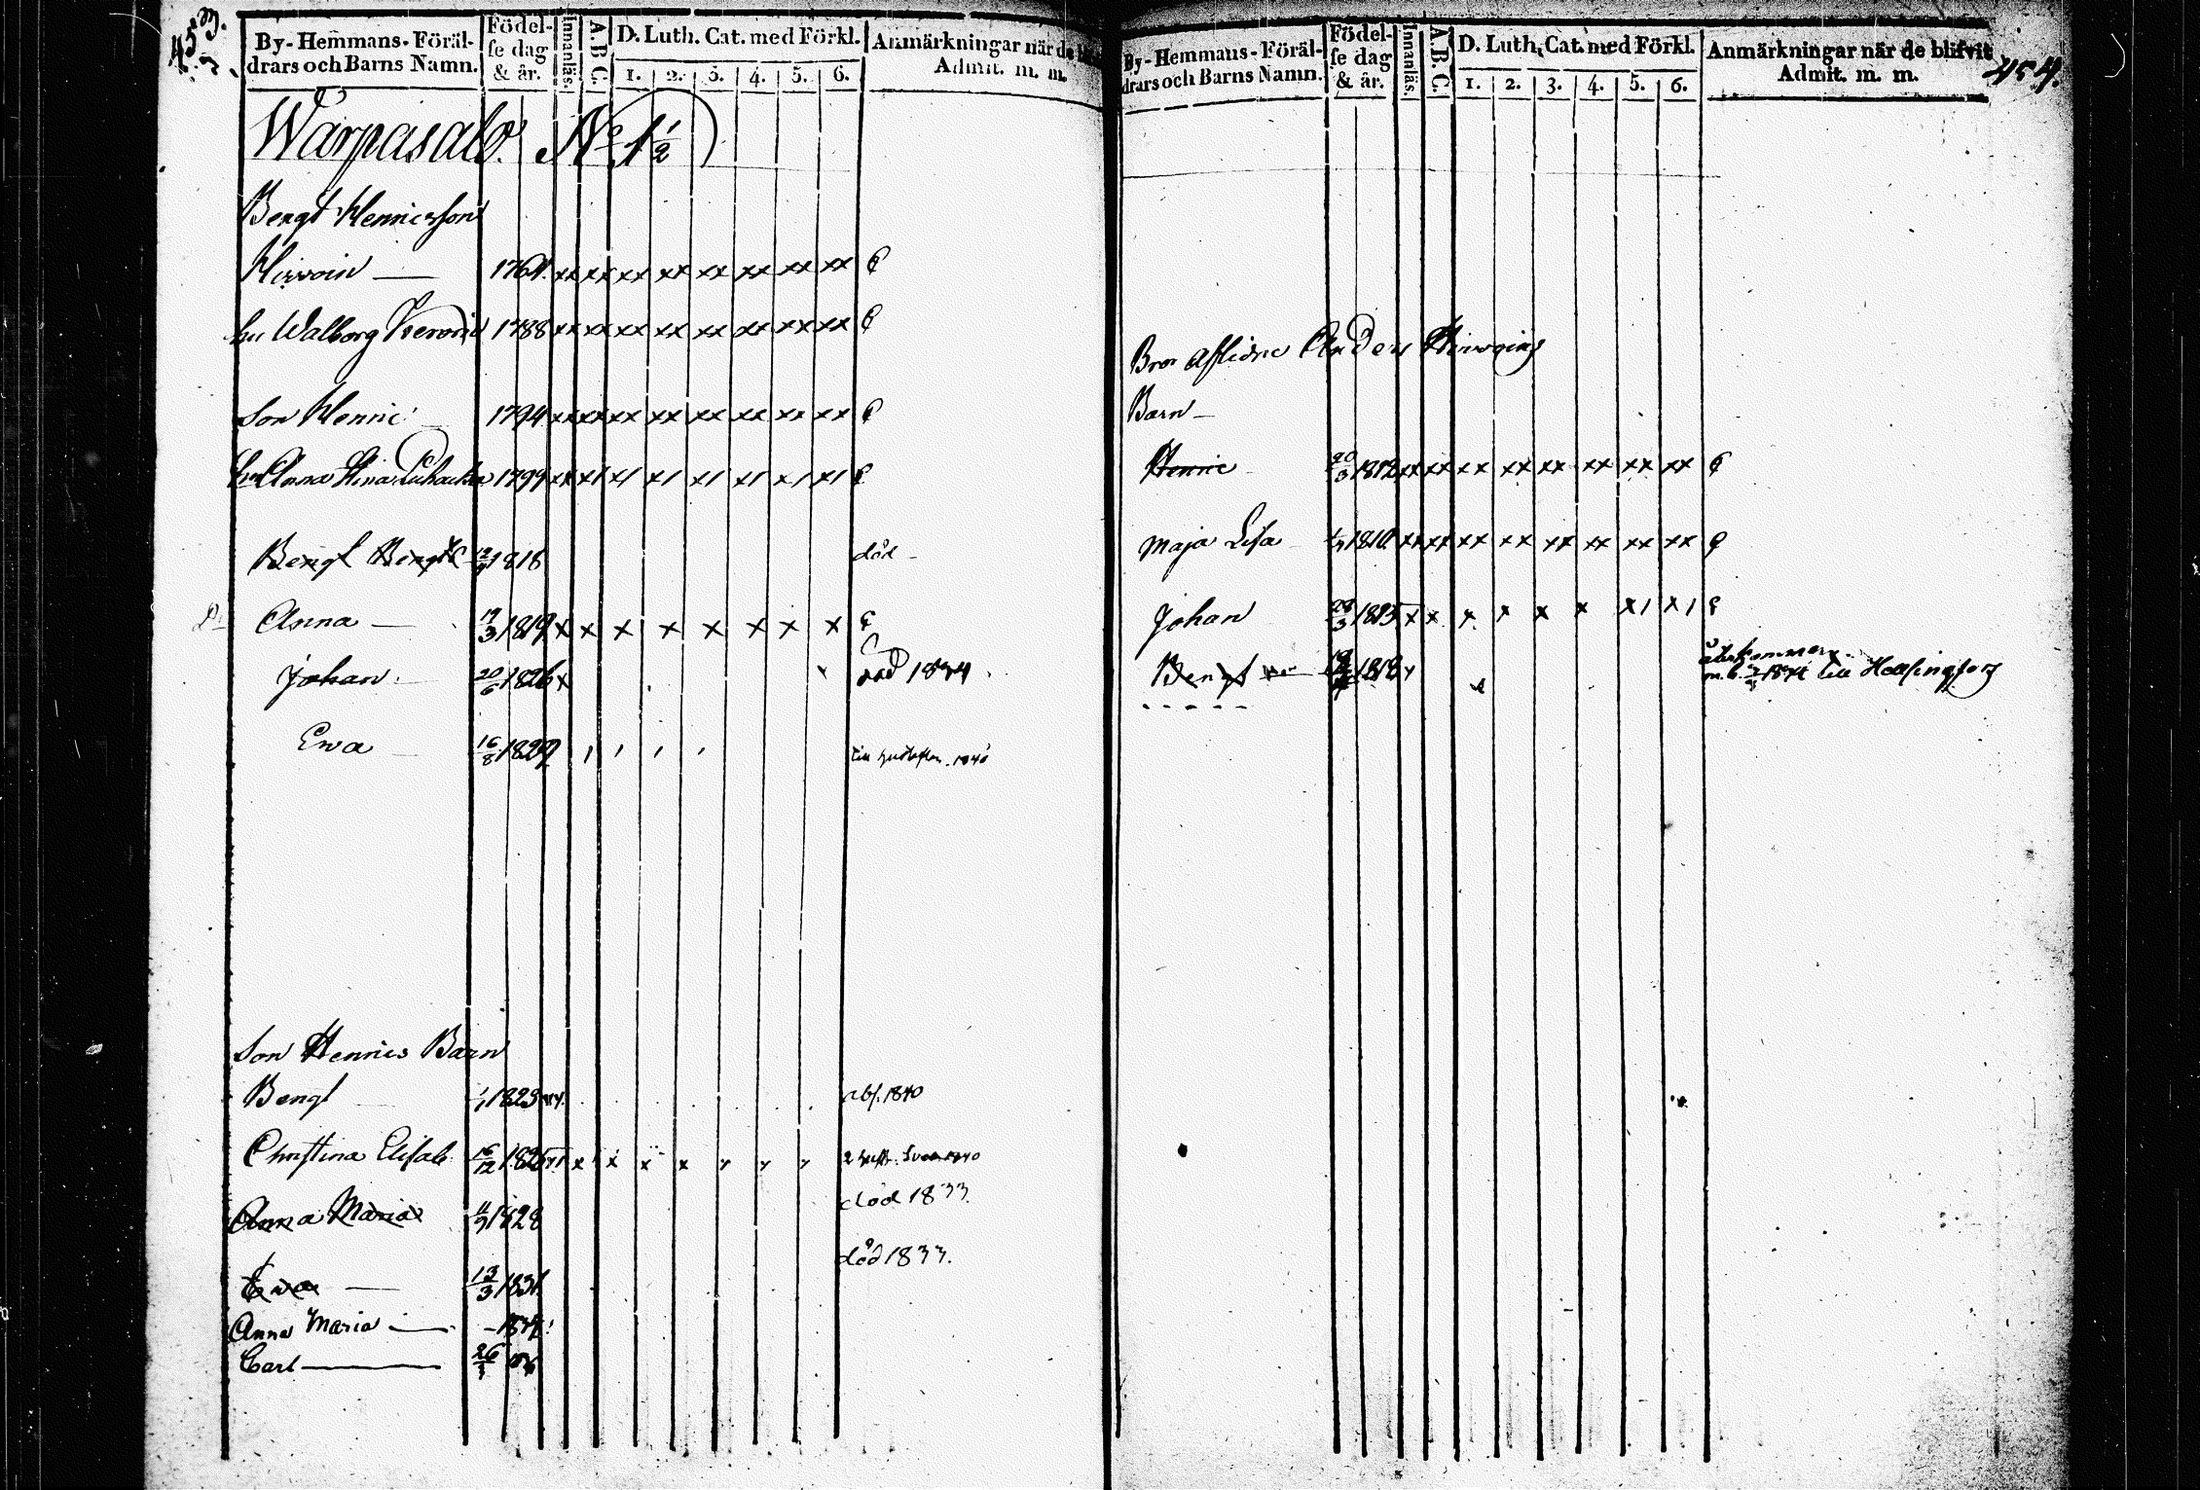 453.
By-Hemmans-Föräl-
drars och Barns Namn.
Födel-
se dag
& år.
Innanläs.
A.B.C.
D. Luth. Cat. med Förkl.
1. 2. 3. 4. 5. 6.
Anmärkningar när de
Admit. m. m.
Warpasalo. No 1 1/2
Bengt Henricsson
Hirvoin — 1764. xx xx xx xx xx xx xx xx
hu Walborg 1788 xx xx xx xx xx xx xx xx
Son Henric 1794 xx xx xx xx xx xx xx xx
hu Anna Stina 1799 xx x1 x1 x1 x1 x1 x1 x1
Bengt 1818 död
Anna — 17/3 1819 x x x x x x x x
Johan 20/6 1826 x död 1834
Ewa 16/8 1829 1 1 1 1 1840
Son Henrics Barn
Bengt 1823 abs. 1840
Christina Elisab 16/12 1825 x x x x 1840
Anna Maria 1828 död 1833
Ewa — 13/3 1831 död 1833.
Anna Maria —
Carl — 26
454.
By-Hemmans-Föräl-
drars och Barns Namn.
Födel-
se dag
& år.
Innanläs.
A.B.C.
D. Luth. Cat. med Förkl.
1. 2. 3. 4. 5. 6.
Anmärkningar när de blifvit
Admit. m. m.
Bror Aflidne Anders Hirvoins
Barn —
Henric 20/3 1812 xx xx xx xx xx xx xx xx
Maja Lisa 1810 xx xx xx xx xx xx xx xx
Johan 28/3 1815 x x x x x x x1 x1
Bengt 1818 till Helsingfors